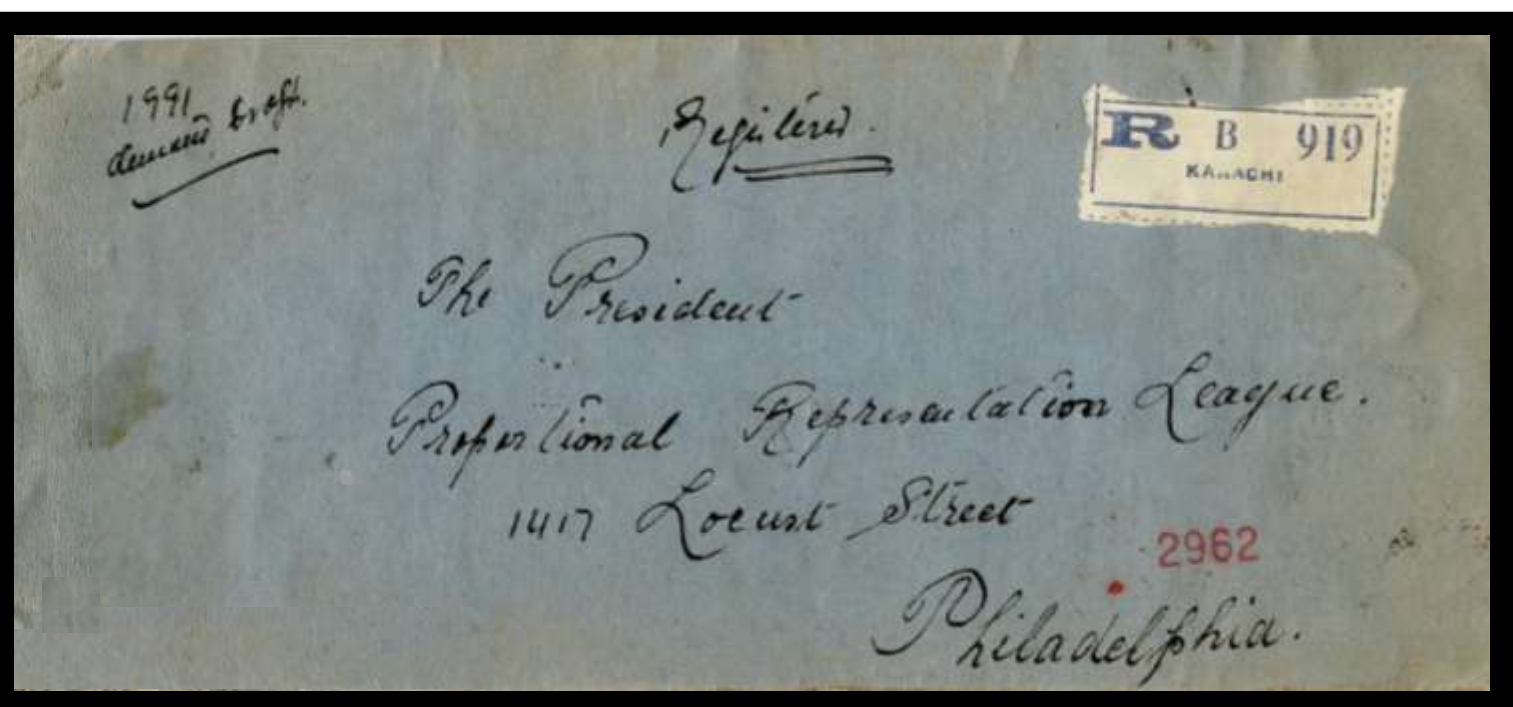 1991
demand draft.
Registered.
R B 919
KARACHI
The President
Proportional Representation League.
1417 Locust Street
2962
Philadelphia.